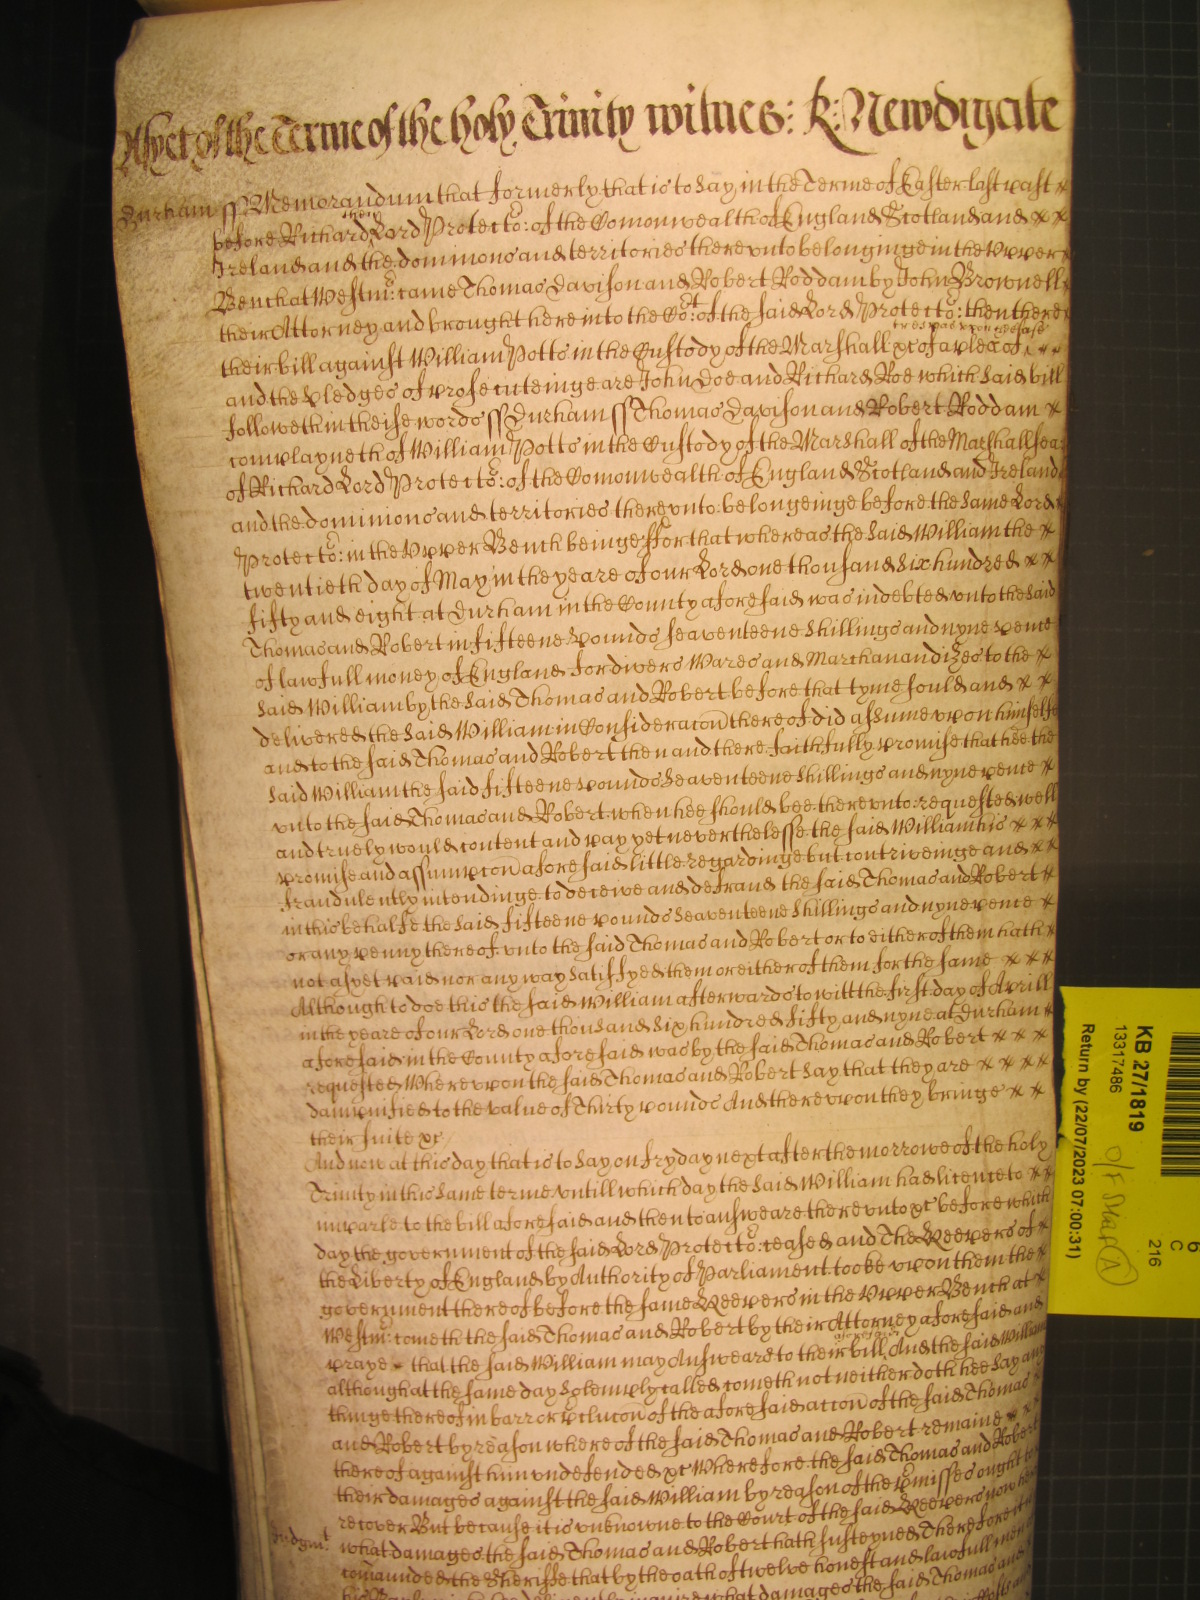 As yet of the Terme of the holy Trinity witnes: R: Newdigate
Durham ss Memorandum that formerly that is to say in the Terme of Easter last past
before Richard then Lord Protector: of the Comonwealth of England Scotland and
Ireland and the dominions and territories thereunto belonginge in the Upper
Bench at Westmr: came Thomas Davison and Robert Roddam by John Brownell
their Attorney and brought here into the Cort: of the said Lord Protector: then there
their bill against William Potts in the Custody of the Marshall &c of a plea of trespas upon the case
and the pledges of prosecuteinge are John Doe and Richard Roe which said bill
followeth in theise words ss Durham ss Thomas Davison and Robert Roddam
complayneth of William Potts in the Custody of the Marshall of the Marshallsea
of Richard Lord Protector: of the Comonwealth of England Scotland and Ireland
and the dominions and territories thereunto belongeinge before the same Lord
Protector: in the Upper Bench beinge ffor that whereas the said William the
twentieth day of May in the yeare of our Lord one thousand six hundred
fifty and eight at Durham in the County aforesaid was indebted unto the said
Thomas and Robert in fifteene pounds seaventeene shillings and nyne pence
of lawfull money of England for divers Wares and Marchanandizes to the
said William by the said Thomas and Robert before that tyme sould and
delivered the said William in Consideracon thereof did assume upon himselfe
and to the said Thomas and Robert then and there faithfully promise that hee the
said William the said fifteene pounds seaventeene shillings and nyne pence
unto the said Thomas and Robert when hee should bee thereunto: requested well
and truely would content and pay yet neverthelesse the said William his
promise and assumpcon aforesaid little regardinge but contriveinge and
fraudulently intendinge to deceive and defraud the said Thomas and Robert
in this behalfe the said fifteene pounds seaventeene shillings and nyne pence
or any penny thereof unto the said Thomas and Robert or to either of them hath
not as yet paid nor any way satisfyed them or either of them for the same
Although to doe this the said William afterwards to witt the first day of Aprill
in the yeare of our Lord one thousand six hundred fifty and nyne at Durham
aforesaid in the County aforesaid was by the said Thomas and Robert
requested Whereupon the said Thomas and Robert say that they are
dampnified to the value of Thirty pounds And thereupon they bringe
their suite &c
And now at this day that is to say on fryday next after the morrowe of the holy
Trinity in this same terme untill which day the said William had licence to
imparle to the bill aforesaid and then to answeare thereunto &c before which
day the government of the said Lord Protector: ceased and The Keepers of
the Liberty of England by Authority of Parliament tooke upon them the
government thereof before the same Keepers in the Upper Bench at
Westmr: cometh the said Thomas and Robert by their Attorney aforesaid and
praye that the said William may Answeare to their bill aforesaid And the said William
although at the same day solempnly called cometh not neither doth hee say any
thinge thereof in barr or preclucon of the aforesaid accon of the said Thomas
and Robert by reason whereof the said Thomas and Robert remaine
thereof against him undefended &c Wherefore the said Thomas and Robert
their damages against the said William by reason of the pmisses ought to
recover But because it is unknowne to the Court of the said Keepers now here
Judgmt: what damages the said Thomas and Robert hath susteyned Therefore it is
comaunded the Sheriffe that by the oath of twelve honest and lawfull men of
his diligently inquire what damages the said Thomas and
KB 27/1819
13317486
Return by (22/07/2023 07:00:31)
O/F Star A
216
C
6